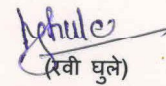 (रवी घुले)